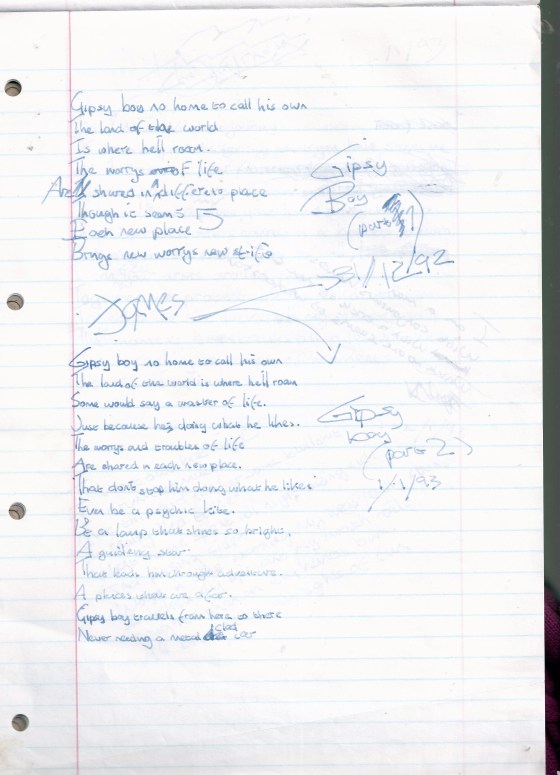 Gipsy boy no home to call his own
The land of the world
Is where hell roam.
The worrys of life
Are shared in different place
Though it seams
Each new place
Brings new worrys new strife
Gipsy
Boy
(part 1)
31/12/92
James
Gipsy boy no home to call his own
The land of the world is where hell roam
Some would say a waster of life.
Just because he's doing what he likes.
The worrys and troubles of life
Are shared in each new place.
That don't stop him doing what he likes
Even be a psychic kite.
Be a lamp that shines so bright,
A guiding star.
That leads him through adventure.
A places what are afar.
Gipsy boy travels from here to there
Never needing a metal clad car
Gipsy
boy
(part 2)
1/1/93